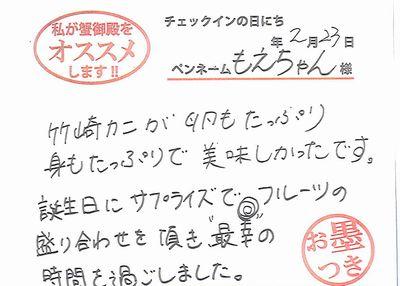 私が蟹御殿を
オススメ
します!!
チェックインの日にち
年2月23日
ペンネームもえちゃん様
竹崎カニが卵もたっぷり
身もたっぷりで美味しかったです。
誕生日にサプライズでフルーツの
盛り合わせを頂き"最幸"の
時間を過ごしました。
お墨
つき